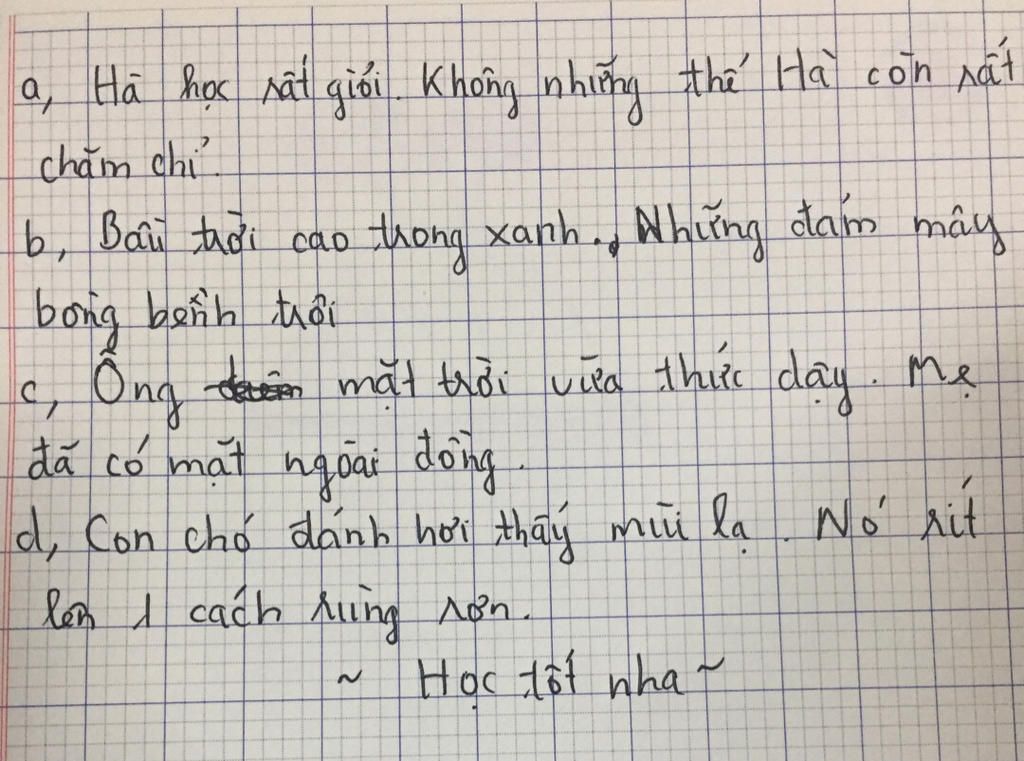 a, Hà học rất giỏi. Không những thế Hà còn rất
chăm chỉ.
b, Bầu trời cao trong xanh. Những đám mây
bồng bềnh trôi
c, Ông mặt trời vừa thức dậy. Mẹ
đã có mặt ngoài đồng.
d, Con chó đánh hơi thấy mùi lạ. Nó rít
lên 1 cách rùng rợn.
~ Học tốt nha ~